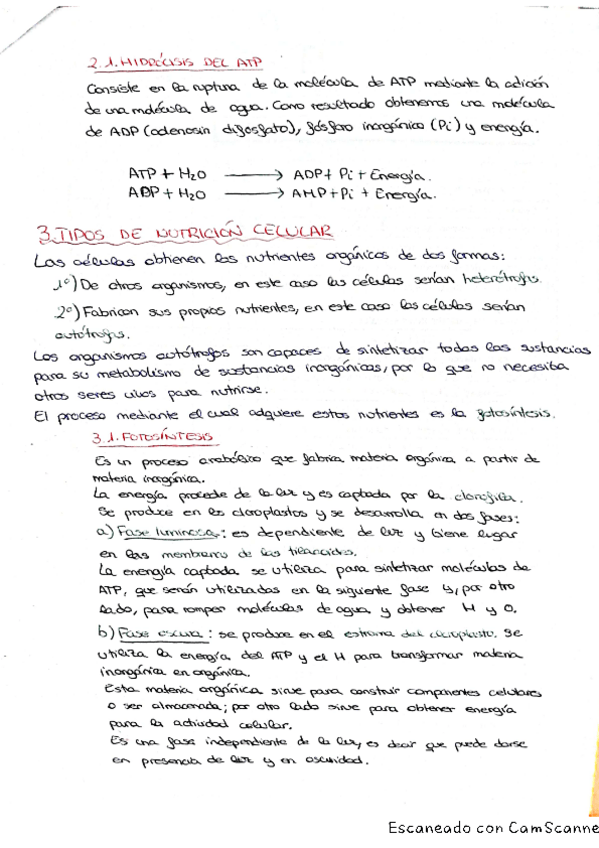 2.1. HIDRÓLISIS DEL ATP
Consiste en la ruptura de la molécula de ATP mediante la adición
de una molécula de agua. Como resultado obtenemos una molécula
de ADP (adenosin difosfato), fósforo inorgánico (Pi) y energía.
ATP + H2O ⟶ ADP + Pi + Energía.
ADP + H2O ⟶ AMP + Pi + Energía.
3. TIPOS DE NUTRICIÓN CELULAR
Las células obtienen los nutrientes orgánicos de dos formas:
1º) De otros organismos, en este caso las células serían heterótrofas.
2º) Fabrican sus propios nutrientes, en este caso las células serían
autótrofas.
Los organismos autótrofos son capaces de sintetizar todas las sustancias
para su metabolismo de sustancias inorgánicas, por lo que no necesita
otros seres vivos para nutrirse.
El proceso mediante el cual adquiere estos nutrientes es la fotosíntesis.
3.1. FOTOSÍNTESIS
Es un proceso anabólico que fabrica materia orgánica a partir de
materia inorgánica.
La energía procede de la luz y es captada por la clorofila.
Se produce en los cloroplastos y se desarrolla en dos fases:
a) Fase luminosa: es dependiente de luz y tiene lugar
en las membrana de los tilacoides.
La energía captada se utiliza para sintetizar moléculas de
ATP, que serán utilizadas en la siguiente fase y, por otro
lado, para romper moléculas de agua y obtener H y O.
b) Fase oscura: se produce en el estroma del cloroplasto. Se
utiliza la energía del ATP y el H para transformar materia
inorgánica en orgánica.
Esta materia orgánica sirve para construir componentes celulares
o ser almacenada; por otro lado sirve para obtener energía
para la actividad celular.
Es una fase independiente de la luz, es decir que puede darse
en presencia de luz y en oscuridad.
Escaneado con CamScanne